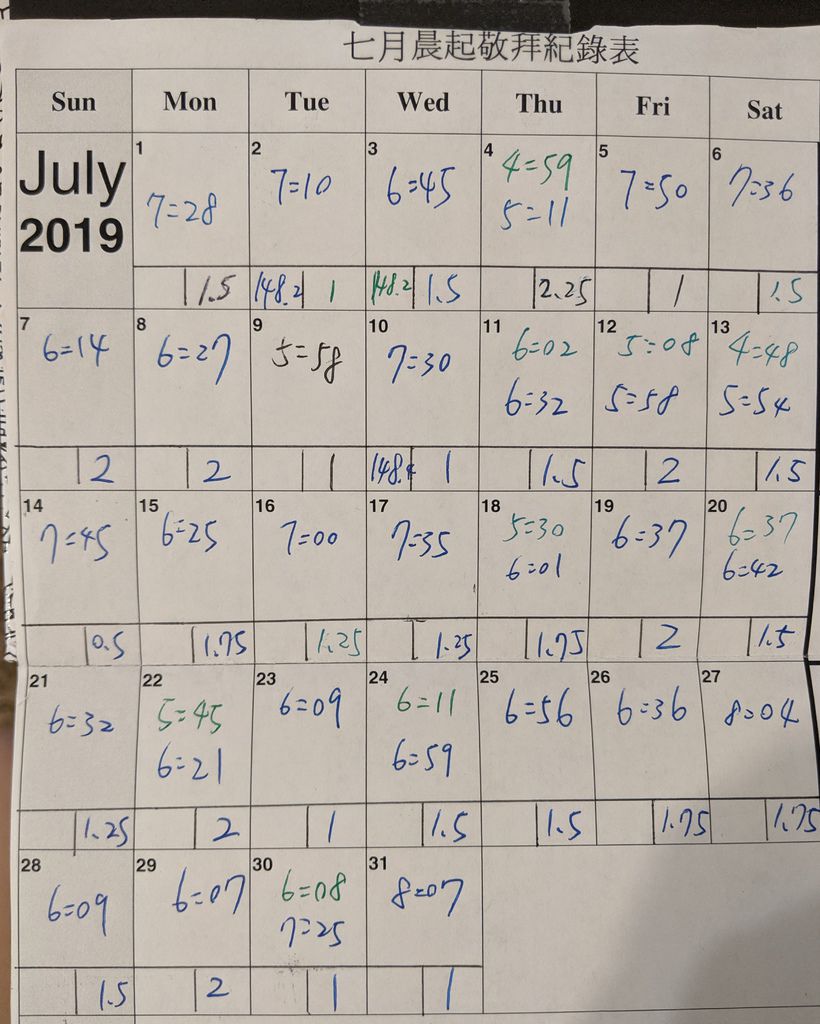 七月晨起敬拜紀錄表
Sun Mon Tue Wed Thu Fri Sat
July
2019
1 2 3 4 5 6
4=59
7=28 7=10 6=45 5=11 7=50 7=36
1.5 148.2 1 148.2 1.5 2.25 1 1.5
7 8 9 10 11 12 13
6=14 6=27 5=58 7=30 6=02 5=08 4=48
6=32 5=58 5=54
2 2 1 148.4 1 1.5 2 1.5
14 15 16 17 18 19 20
7=45 6=25 7=00 7=35 5=30 6=37 6=37
6=01 6=42
0.5 1.75 1.25 1.25 1.75 2 1.5
21 22 23 24 25 26 27
6=32 5=45 6=09 6=11 6=56 6=36 8=04
6=21 6=59
1.25 2 1 1.5 1.5 1.75 1.75
28 29 30 31
6=09 6=07 6=08 8=07
7=25
1.5 2 1 1